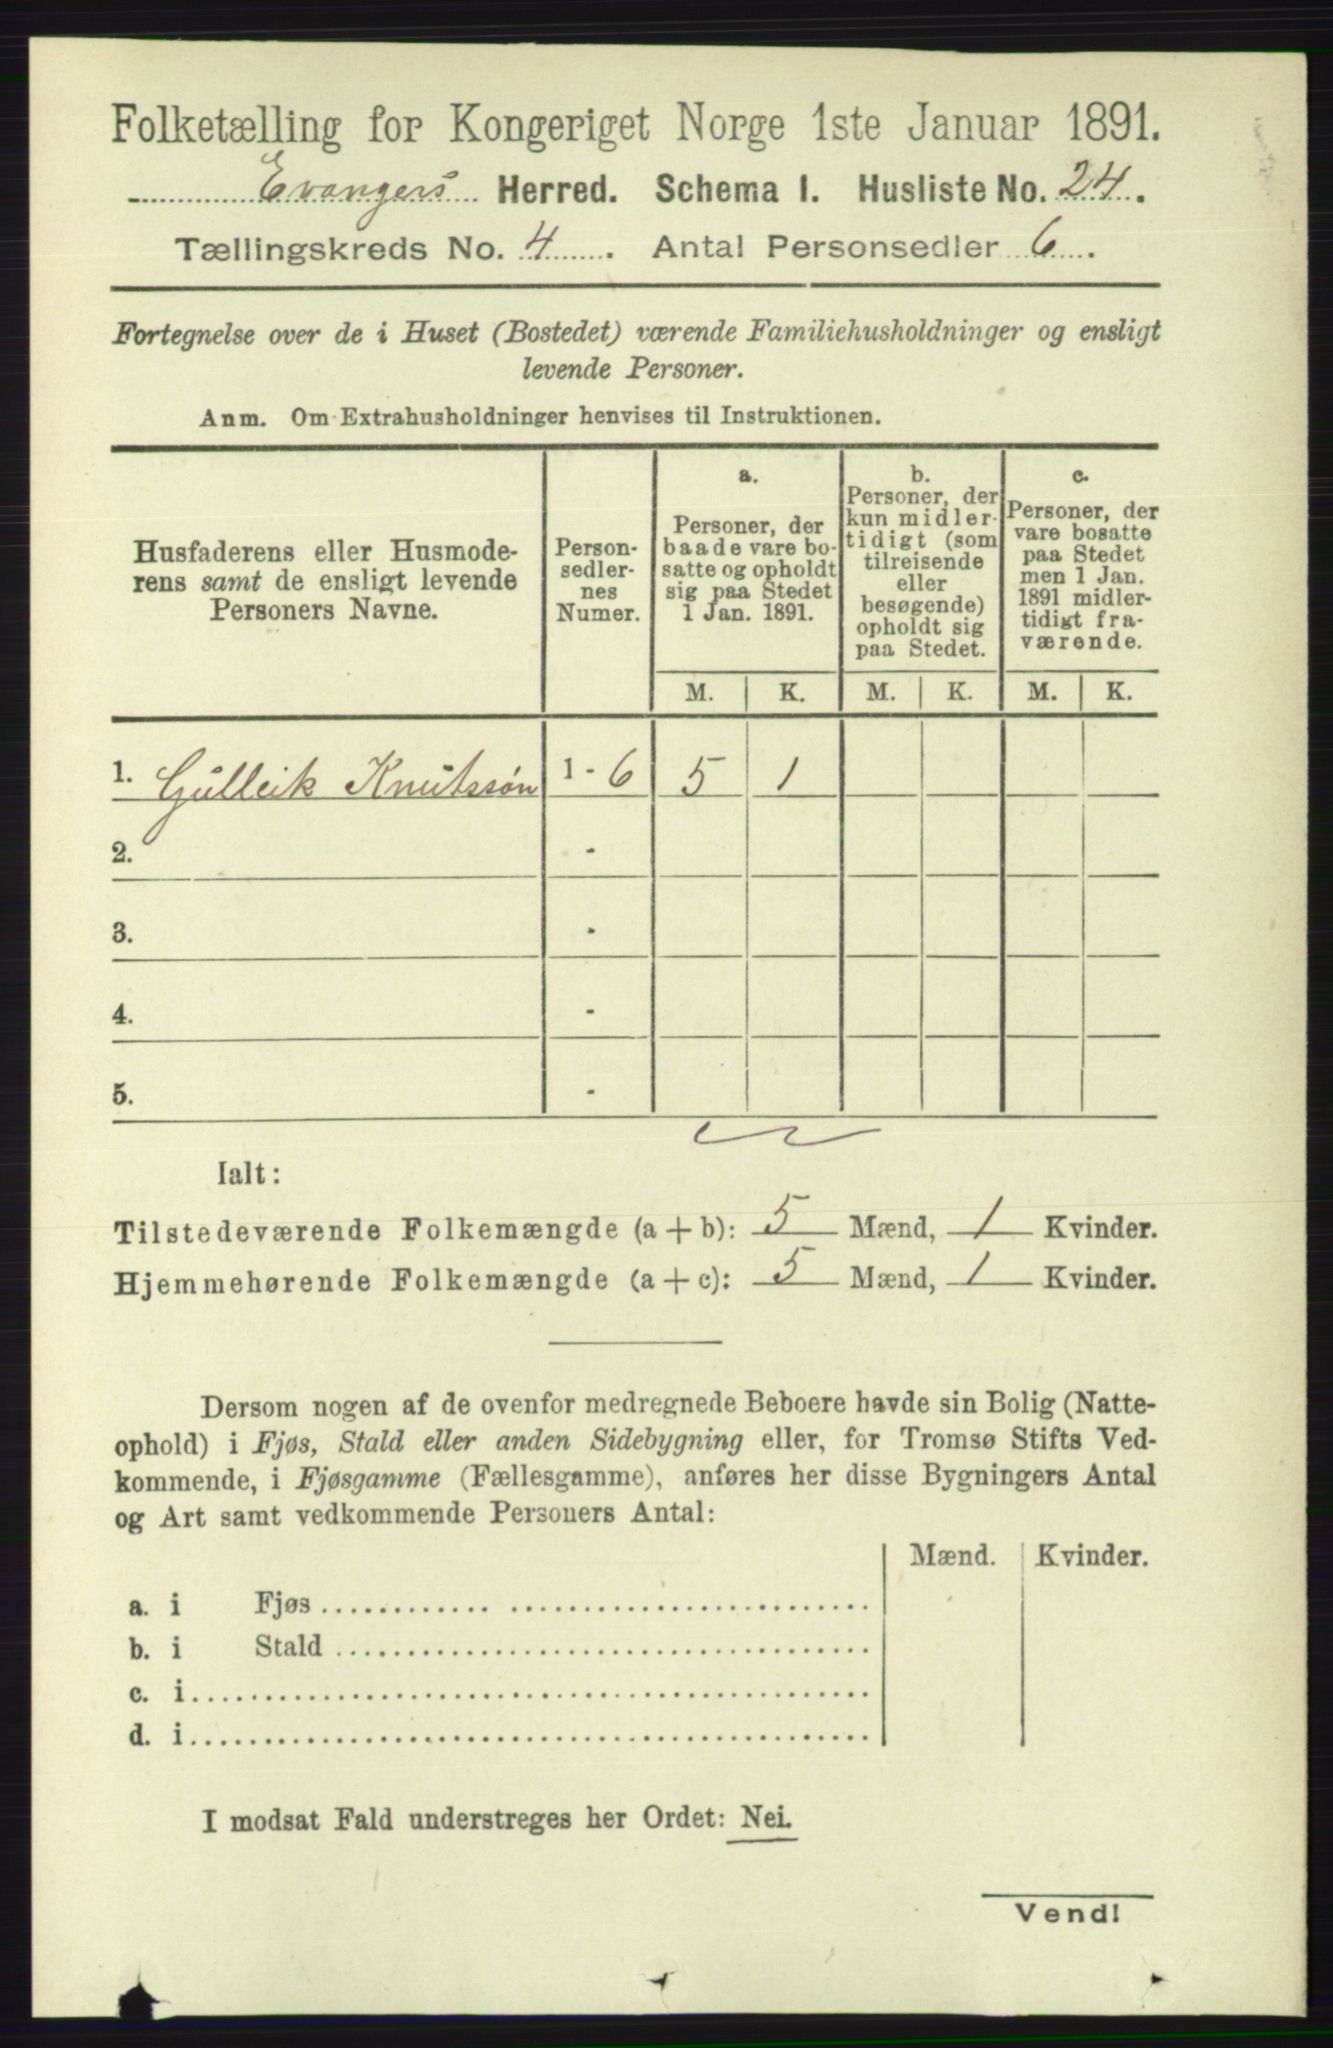 Folketælling for Kongeriget Norge 1ste Januar 1891.
Evangers Herred. Schema I. Husliste No. 24.
Tællingskreds No. 4. Antal Personsedler 6.
Fortegnelse over de i Huset (Bostedet) værende Familiehusholdninger og ensligt
levende Personer.
Anm. Om Extrahusholdninger henvises til Instruktionen.
Husfaderens eller Husmode-
rens samt de ensligt levende
Personers Navne.
Person-
sedler-
nes
Numer.
a.
Personer, der
baade vare bo-
satte og opholdt
sig paa Stedet
1 Jan. 1891.
b.
Personer, der
kun midler-
tidigt (som
tilreisende
eller
besøgende)
opholdt sig
paa Stedet.
c.
Personer, der
vare bosatte
paa Stedet
men 1 Jan.
1891 midler-
tidigt fra-
værende.
M. K. M. K. M. K.
1. Gulleik Knutssøn 1 - 6 5 1
2. -
3. -
4. -
5. -
Ialt:
Tilstedeværende Folkemængde (a + b): 5 Mænd, 1 Kvinder.
Hjemmehørende Folkemængde (a + c): 5 Mænd, 1 Kvinder.
Dersom nogen af de ovenfor medregnede Beboere havde sin Bolig (Natte-
ophold) i Fjøs, Stald eller anden Sidebygning eller, for Tromsø Stifts Ved-
kommende, i Fjøsgamme (Fællesgamme), anføres her disse Bygningers Antal
og Art samt vedkommende Personers Antal:
Mænd. Kvinder.
a. i Fjøs
b. i Stald
c. i
d. i
I modsat Fald understreges her Ordet: Nei.
Vend!